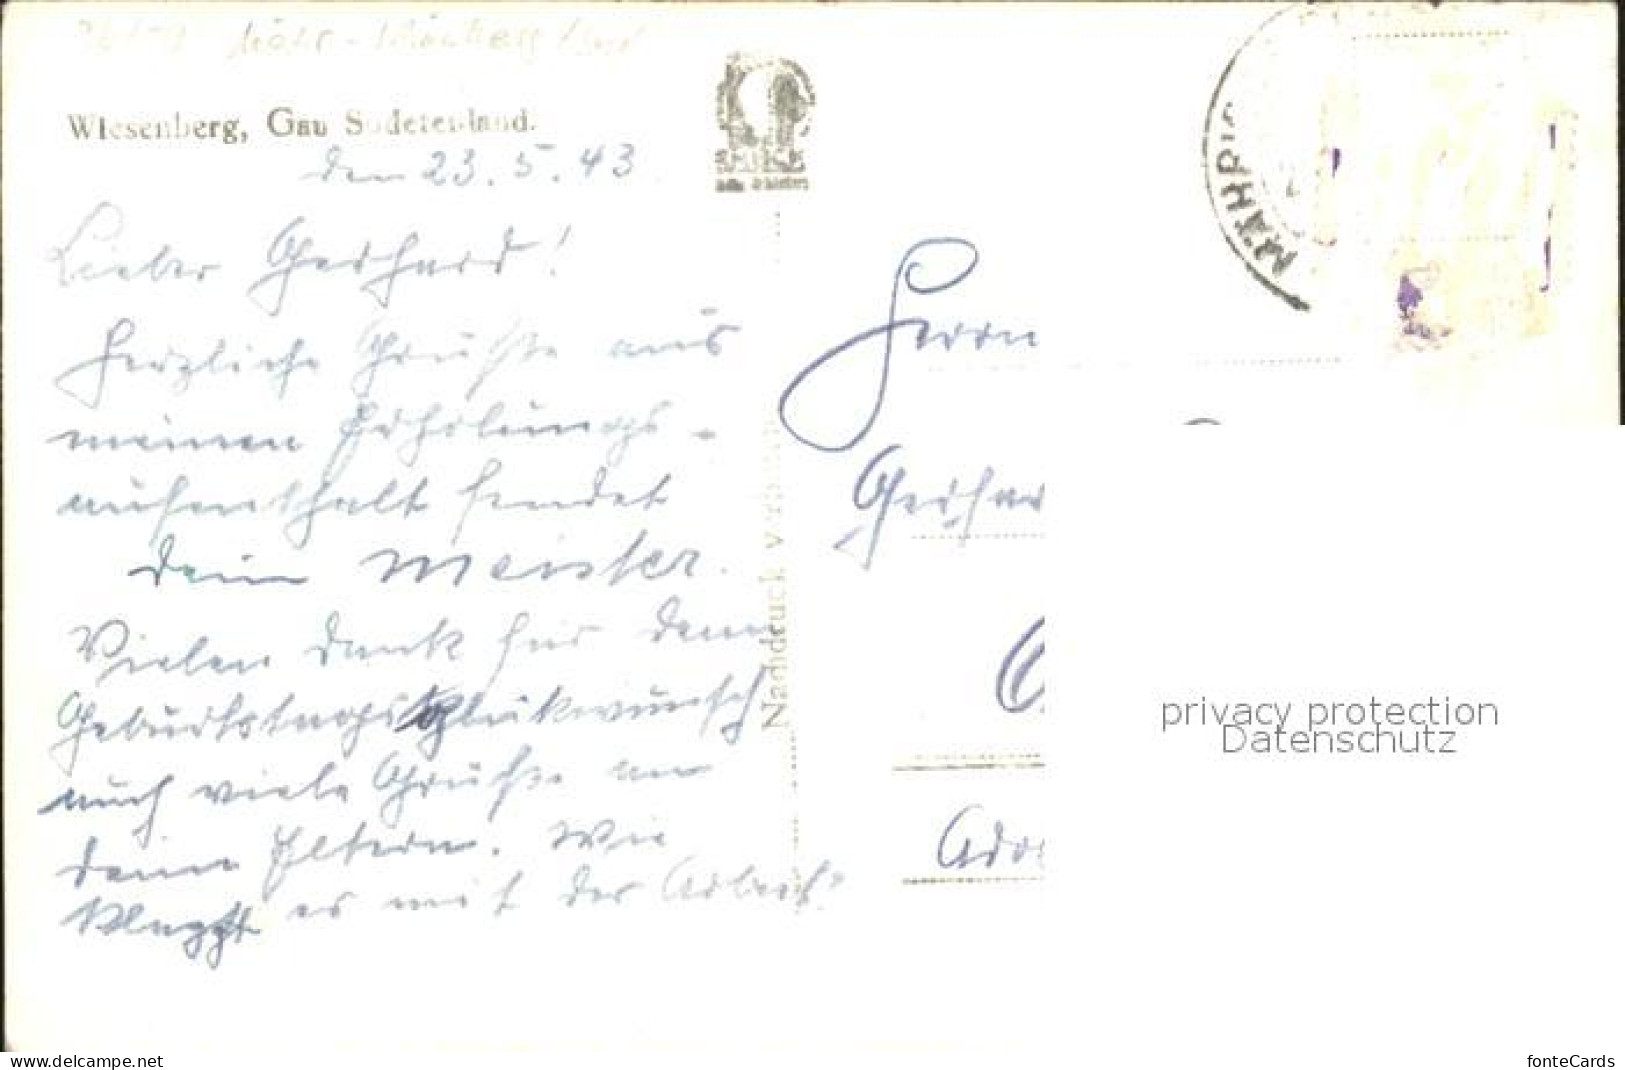 Wiesenberg, Gau Sudetenland.
den 23. 5. 43
Lieber Gerhard!
Herzliche Grüße aus
meinen Erholungs-
aufenthalt sendet
dein Meister.
Vielen Dank für dein
Geburtstagsglückwunsch
auch viele Grüße an
deine Eltern. Wie
klappt es mit der Arbeit?
Nachdruck verboten
MÄHRISC
Herrn
Gerhar
Ado
privacy protection
Datenschutz
www.delcampe.net
fonteCards